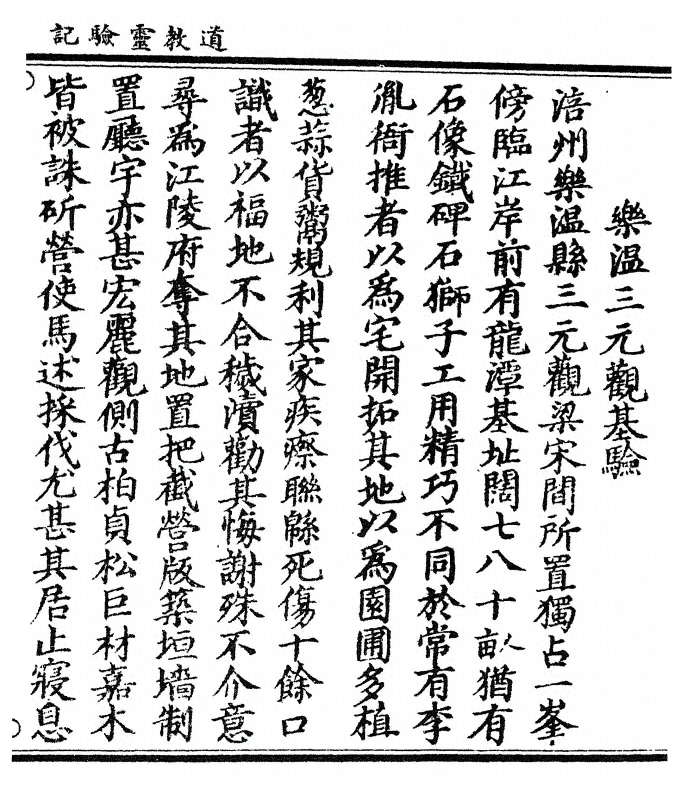 道教靈驗記
樂温三元觀基驗
涪州樂温縣三元觀梁宋間所置獨占一峯
傍臨江岸前有龍潭基址闊七八十畝猶有
石像鐵碑石獅子工用精巧不同於常有李
胤衙推者以爲宅開拓其地以爲園圃多植
葱蒜貨鬻規利其家疾瘵聮緜死傷十餘口
識者以福地不合穢瀆勸其悔謝殊不介意
尋為江陵府奪其地置把截營版築垣墻制
置廳宇亦甚宏麗觀側古柏貞松巨材嘉木
皆被誅斫營使馬述採伐尤甚其居止寢息